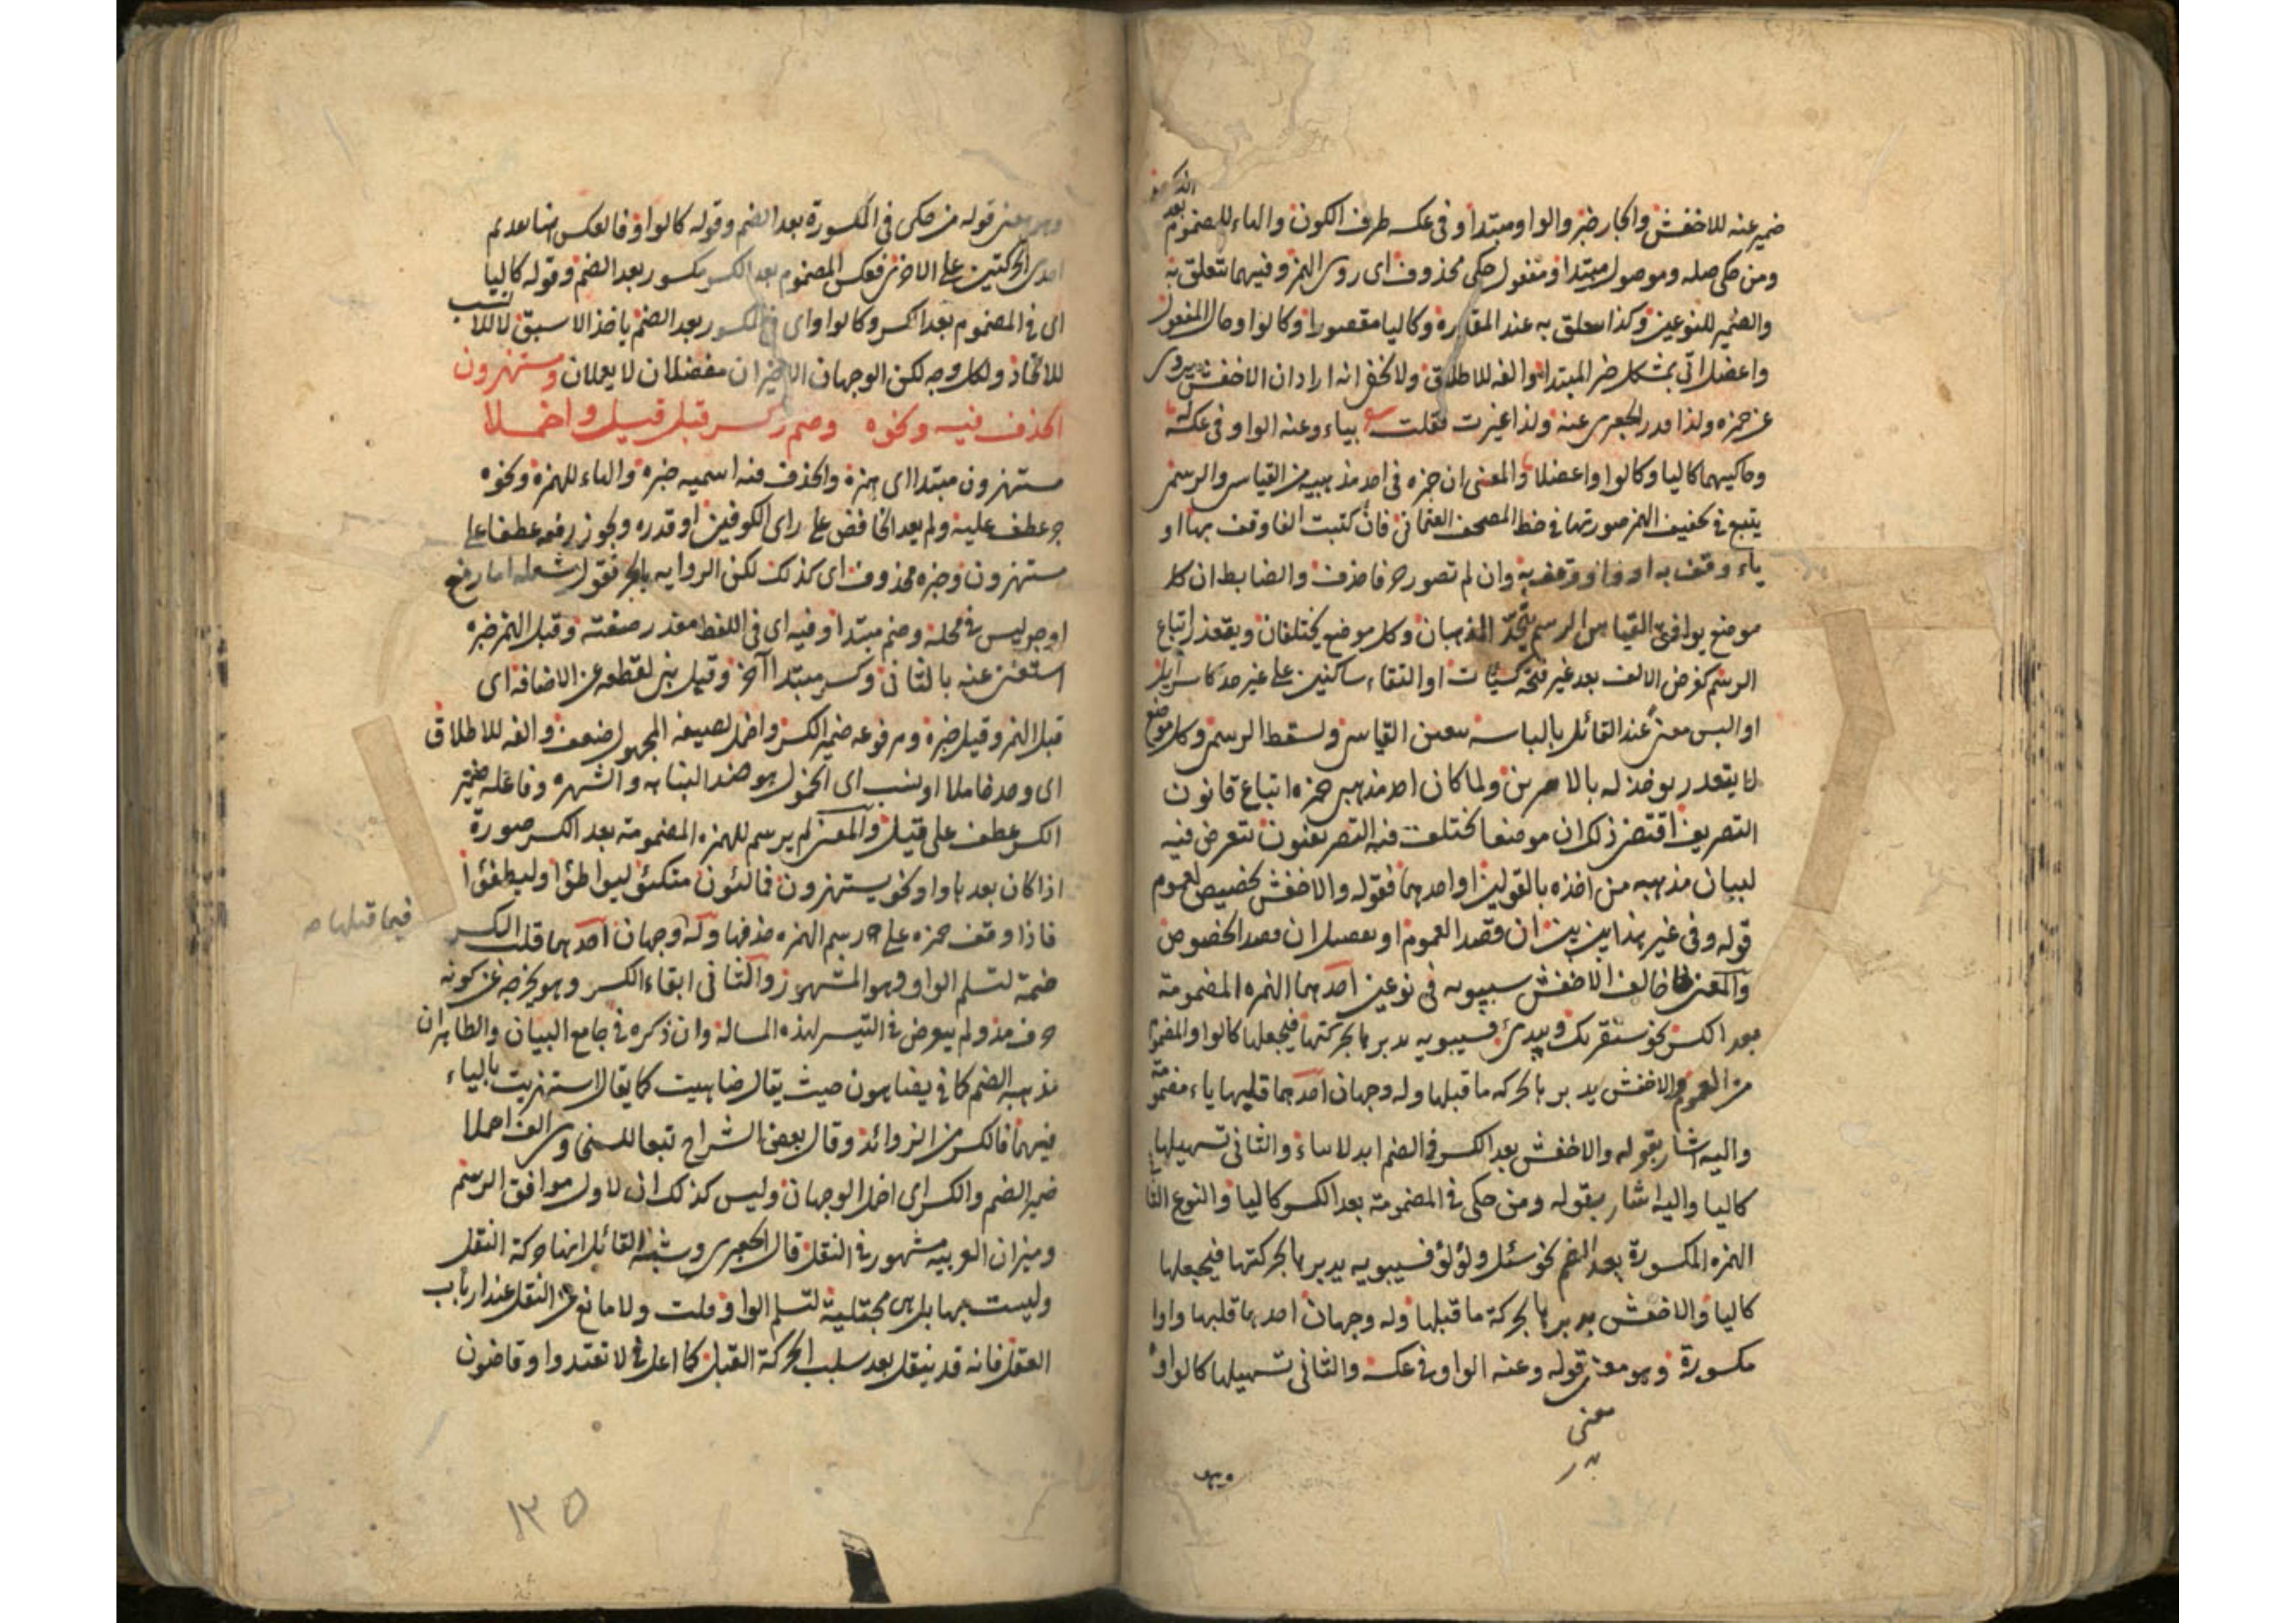 ضمير عنه للاخفش والجار خبر والواو مبتدا وفى عكسه ظرف الكون والياء للمضموم بعد
ومن حكى صله وموصول مبتدا ومفعول حكى محذوف اى روى الهمز وفيهما تتعلق به
والضمير للنوعين وكذا متعلق به عند المقدرة وكاليا مقصورا وكالواو حال المفعول
واعضل اتى بمشكل خبر المبتدا والفه للاطلاق ولا يخفى انه اراد ان الاخفش يروى
عن حمزه ولذا قدر الجعبرى عنه ولذا غيرت فقلت بياء وعنه الواو فى عكسه
وحاكيهما كاليا وكالواو اعضلا والمعنى ان حمزه فى احد مذهبيه من القياس والرسم
يتبع فى تخفيف الهمز صورتها فى خط المصحف العثمانى فان كتبت الفا وقف بها او
ياء وقف به او واوا وقف به وان لم تصور حرفا حذف والضابط ان كل
موضع يوافق القياس الرسم يتحد المذهبان وكل موضع يختلفان ويتعذر اتباع
الرسم كفرض الالف بعد غير فتحة كسيات او التقاء ساكنين على غير حد
او البس معنى عند القائل بالباسه تعين القياس وسقط الرسم وكل موضع
لا يتعذر يوخذ له بالامرين ولما كان احد مذهبى حمزه اتباع قانون
التصريف اقتضى ذلك ان موضعا يختلف فيه التصريفيون نتعرض فيه
لبيان مذهبه من اخذه بالقولين او احدهما فقوله والاخفش تخصيص لعموم
قوله وفى غير هذا بين بين ان قصد العموم او تفصيل ان قصد الخصوص
والمعنى خالف الاخفش سيبويه فى نوعين احدهما الهمزه المضمومة
بعد الكسر نحو سنقرئك ويبدئ فسيبويه يدبرها بحركتها فيجعلها كالواو المفهوم
من العموم والاخفش يدبرها بحركه ما قبلها وله وجهان احدهما قلبها ياء مضمومة
واليه اشار بقوله والاخفش بعد الكسر ذا الضم ابدلا بياء والثانى تسهيلها
كاليا واليه اشار بقوله ومن حكى فى المضمومة بعد الكسر كاليا والنوع الثانى
الهمزه المكسورة بعد الضم نحو سئل ولؤلؤ فسيبويه يدبرها بحركتها فيجعلها
كاليا والاخفش يدبرها بحركة ما قبلها وله وجهان احدهما قلبها واوا
مكسورة وهو معنى قوله وعنه الواو فى عكسه والثانى تسهيلها كالواو
معنى
وهو
وهو معنى قوله من حكى فى المكسورة بعد الضم وقوله كالواو فالعكس
احدى الحركتين على الاخرى فعكس المضموم بعد الكسر مكسور بعد الضم وقوله كاليا
اى فى المضموم بعد الكسر وكالواو اى فى المكسور بعد الضم ياخذ الاسبق
للاتخاذ ولكل وجه لكن الوجهان الاخيران مفضلان لا يعملان ومستهزون
الحذف فيه ونحوه وضم وكسر قبل قيل واخملا
مستهزون مبتدا اى همزة والحذف فيه اسميه خبره والهاء للهمزه ونحوه
جر عطف عليه ولم يعد الخافض على راى الكوفيين او قدره ويجوز رفعه عطفا على
مستهزون وخبره محذوف اى كذلك لكن الروايه بالجر فقول شعله اما رفع
او جر ليس فى محله وضم مبتدا وفيه اى فى اللفظ مقدر صفته وقبل الهمز خبره
استغنى عنه بالثانى وكسر مبتدا آخر وقيل بنى لقطعه عن الاضافه اى
قبل الهمز وقيل خبره ومرفوعه ضمير الكسر واخمل بصيغه المجهول ضعف والفه للاطلاق
اى وجد خاملا او نسب اى الخمول هو ضد النباهه والشهره وفاعله ضمير
الكسر عطف على قيل والمعنى لم يرسم للهمزه المضمومة بعد الكسر صورة
اذا كان بعدها واو نحو يستهزون فمالئون متكئون ليواطؤا وليطفؤا
فاذا وقف حمزه على رسم الهمزه حذفها وله وجهان احدهما قلب الكسر
فيما قبلها
ضمة لتسلم الواو وهو المشهور والثانى ابقاء الكسر وهو يخرجه عن كونه
حرف مد ولم يتعرض فى التيسير لهذه المساله وان ذكره فى جامع البيان والظاهر ان
مذهبه الضم كما فى يضاهون حيث يقال ضاهيت كما يقال استهزيت بالياء
فيهما فالكسر من الزوائد وقال بعض الشراح تبعا للسخاوى الف اخملا
ضمير الضم والكسر اى اخمل الوجهان وليس كذلك لان الاول موافق الرسم
وميزان العربيه مشهور فى النقل قال الجعبرى وشبهة القائل انها حركة النقل
وليست بها بل هى مجتلبة لتسلم الواو قلت ولا مانع من النقل عند ارباب
العقل فانه قد ينقل بعد سلب الحركة القبل كما اعل فى لا تعتدوا وقاضون
١٣٥